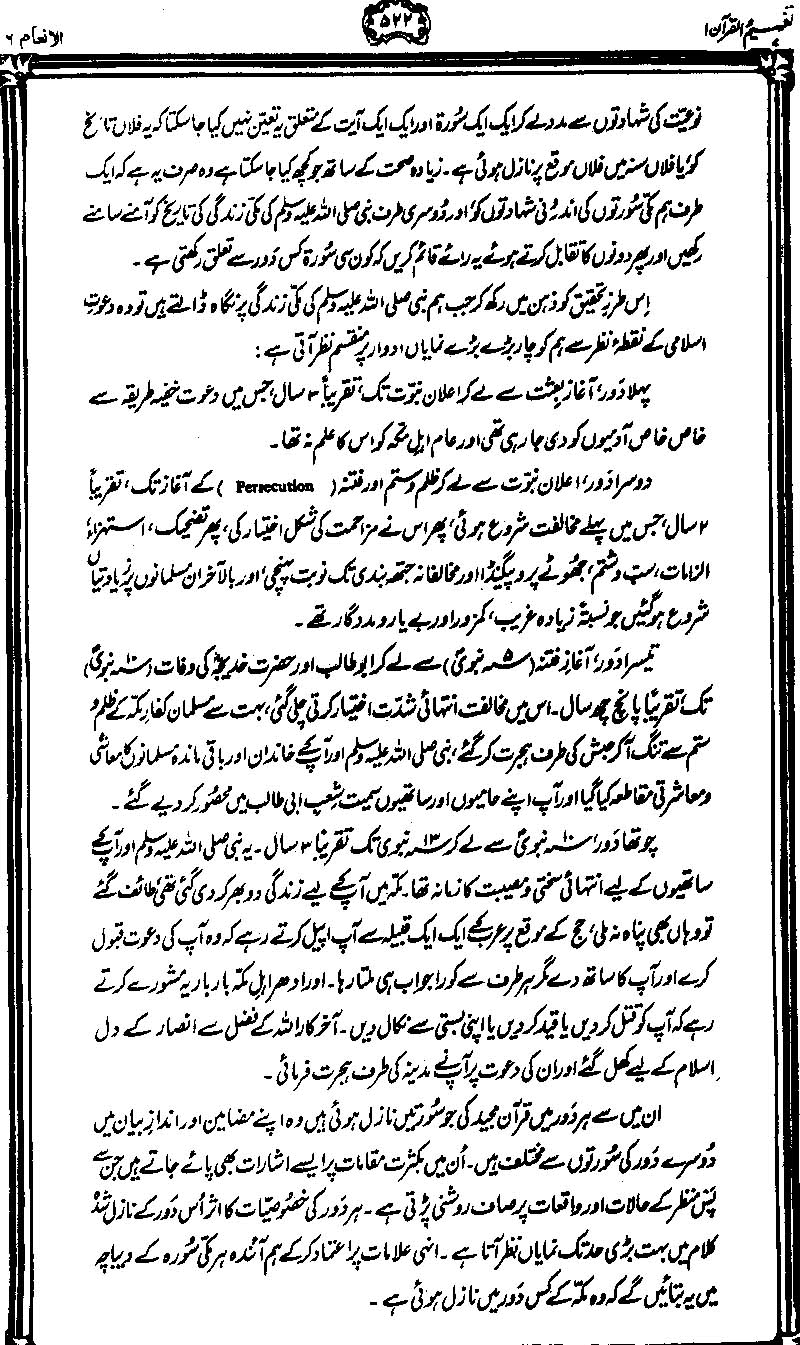 تفہیم القرآن ۱
۵۲۲
الانعام ۶
نوعیت کی شہادتوں سے مدد لے کر ایک ایک سُورۃ اور ایک ایک آیت کے متعلق یہ تعین نہیں کیا جا سکتا کہ یہ فلاں تاریخ
کو، یا فلاں سنہ میں فلاں موقع پر نازل ہوئی ہے۔ زیادہ صحت کے ساتھ جو کچھ کیا جا سکتا ہے وہ صرف یہ ہے کہ ایک
طرف ہم مکّی سُورتوں کی اندرُونی شہادتوں کو، اور دُوسری طرف نبی صلی اللہ علیہ وسلم کی مکّی زندگی کی تاریخ کو آمنے سامنے
رکھیں اور پھر دونوں کا تقابل کرتے ہوئے یہ رائے قائم کریں کہ کون سی سُورۃ کس دَور سے تعلق رکھتی ہے۔
اِس طرزِ تحقیق کو ذہن میں رکھ کر جب ہم نبی صلی اللہ علیہ وسلم کی مکّی زندگی پر نگاہ ڈالتے ہیں تو وہ دعوتِ
اسلامی کے نقطۂ نظر سے ہم کو چار بڑے بڑے نمایاں ادوار پر منقسم نظر آتی ہے:
پہلا دَور، آغازِ بعثت سے لے کر اعلانِ نبوّت تک، تقریباً ۳ سال، جس میں دعوت خفیہ طریقہ سے
خاص خاص آدمیوں کو دی جا رہی تھی اور عام اہلِ مکّہ کو اس کا علم نہ تھا۔
دوسرا دَور، اعلانِ نبوّت سے لے کر ظلم و ستم اور فتنہ ( Persecution ) کے آغاز تک، تقریباً
۲ سال، جس میں پہلے مخالفت شروع ہوئی، پھر اس نے مزاحمت کی شکل اختیار کی، پھر تضحیک، استہزاء،
الزامات، سبّ و شتم، جھُوٹے پروپیگنڈا اور مخالفانہ جتھہ بندی تک نوبت پہنچی، اور بالآخر ان مسلمانوں پر زیادتیاں
شروع ہو گئیں جو نسبتۃً زیادہ غریب، کمزور اور بے یار و مددگار تھے۔
تیسرا دَور، آغازِ فتنہ (۵ سنہ نبویؐ) سے لے کر ابو طالب اور حضرت خدیجہؓ کی وفات (۱۰ سنہ نبویؐ)
تک، تقریبًا پانچ چھ سال۔ اس میں مخالفت انتہائی شدّت اختیار کرتی چلی گئی، بہت سے مسلمان کفارِ مکّہ کے ظلم و
ستم سے تنگ آ کر حبش کی طرف ہجرت کر گئے، نبی صلی اللہ علیہ وسلم اور آپؐ کے خاندان اور باقی ماندہ مسلمانوں کا معاشی
و معاشرتی مقاطعہ کیا گیا اور آپ اپنے حامیوں اور ساتھیوں سمیت شِعبِ ابی طالب میں محصُور کر دیے گئے۔
چوتھا دَور، ۱۰ سنہ نبویؐ سے لے کر ۱۳ سنہ نبوی تک تقریبًا ۳ سال۔ یہ نبی صلی اللہ علیہ وسلم اور آپؐ کے
ساتھیوں کے لیے انتہائی سختی و مصیبت کا زمانہ تھا۔ مکّہ میں آپؐ کے لیے زندگی دوبھر کر دی گئی تھی، طائف گئے
تو وہاں بھی پناہ نہ ملی، حج کے موقع پر عرب کے ایک ایک قبیلہ سے آپ اپیل کرتے رہے کہ وہ آپ کی دعوت قبول
کرے اور آپ کا ساتھ دے مگر ہر طرف سے کورا جواب ہی ملتا رہا۔ اور ادھر اہلِ مکّہ بار بار یہ مشورے کرتے
رہے کہ آپ کو قتل کر دیں یا قید کر دیں یا اپنی بستی سے نکال دیں۔ آخر کار اللہ کے فضل سے انصار کے دل
اسلام کے لیے کھل گئے اور ان کی دعوت پر آپ نے مدینہ کی طرف ہجرت فرمائی۔
ان میں سے ہر دَور میں قرآن مجید کی جو سُورتیں نازل ہوئی ہیں وہ اپنے مضامین اور اندازِ بیان میں
دُوسرے دَور کی سُورتوں سے مختلف ہیں۔ اُن میں بکثرت مقامات پر ایسے اشارات بھی پائے جاتے ہیں جن سے
پَس منظر کے حالات اور واقعات پر صاف روشنی پڑتی ہے۔ ہر دَور کی خصُوصیّات کا اثر اُس دَور کے نازل شدہ
کلام میں بہت بڑی حد تک نمایاں نظر آتا ہے۔ انہی علامات پر اعتماد کر کے ہم آئندہ ہر مکّی سُورہ کے دیباچہ
میں یہ بتائیں گے کہ وہ مکّہ کے کس دَور میں نازل ہوئی ہے۔